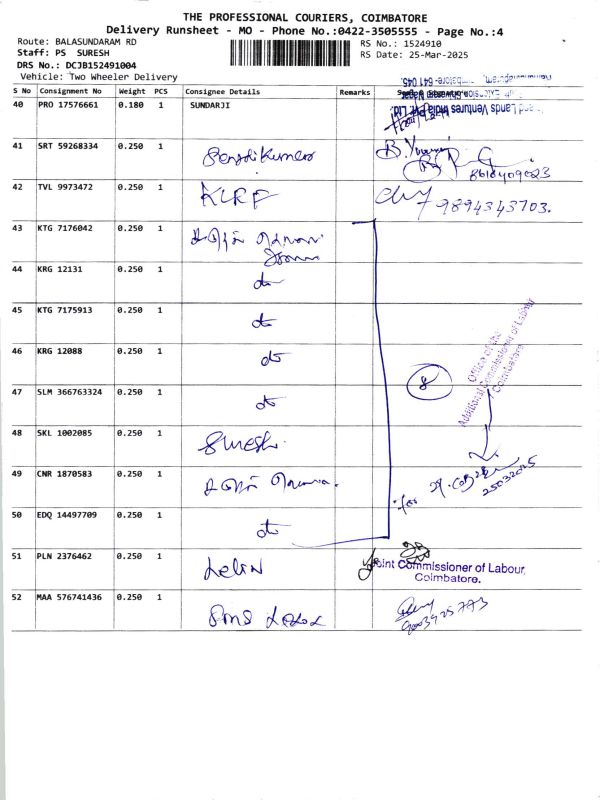 THE PROFESSIONAL COURIERS, COIMBATORE
Delivery Runsheet - MO - Phone No.:0422-3505555 - Page No.:4
Route: BALASUNDARAM RD
RS No.: 1524910
Staff: PS SURESH
RS Date: 25-Mar-2025
DRS No.: DCJB152491004
Vehicle: Two Wheeler Delivery
S No Consignment No Weight PCS Consignee Details Remarks
and Lands Ventures India Pvt. Ltd.
40 PRO 17576661 0.180 1 SUNDARJI
41 SRT 59268334 0.250 1
42 TVL 9973472 0.250 1 KLRF 9894343703.
43 KTG 7176042 0.250 1
44 KRG 12131 0.250 1 do
45 KTG 7175913 0.250 1 do
46 KRG 12088 0.250 1 do
Office of the
Additional Commissioner of Labour
Coimbatore
8
47 SLM 366763324 0.250 1 do
48 SKL 1002085 0.250 1 Suresh
49 CNR 1870583 0.250 1
for
25032025
50 EDQ 14497709 0.250 1 do
51 PLN 2376462 0.250 1
Joint Commissioner of Labour,
Coimbatore.
52 MAA 576741436 0.250 1
9003925773